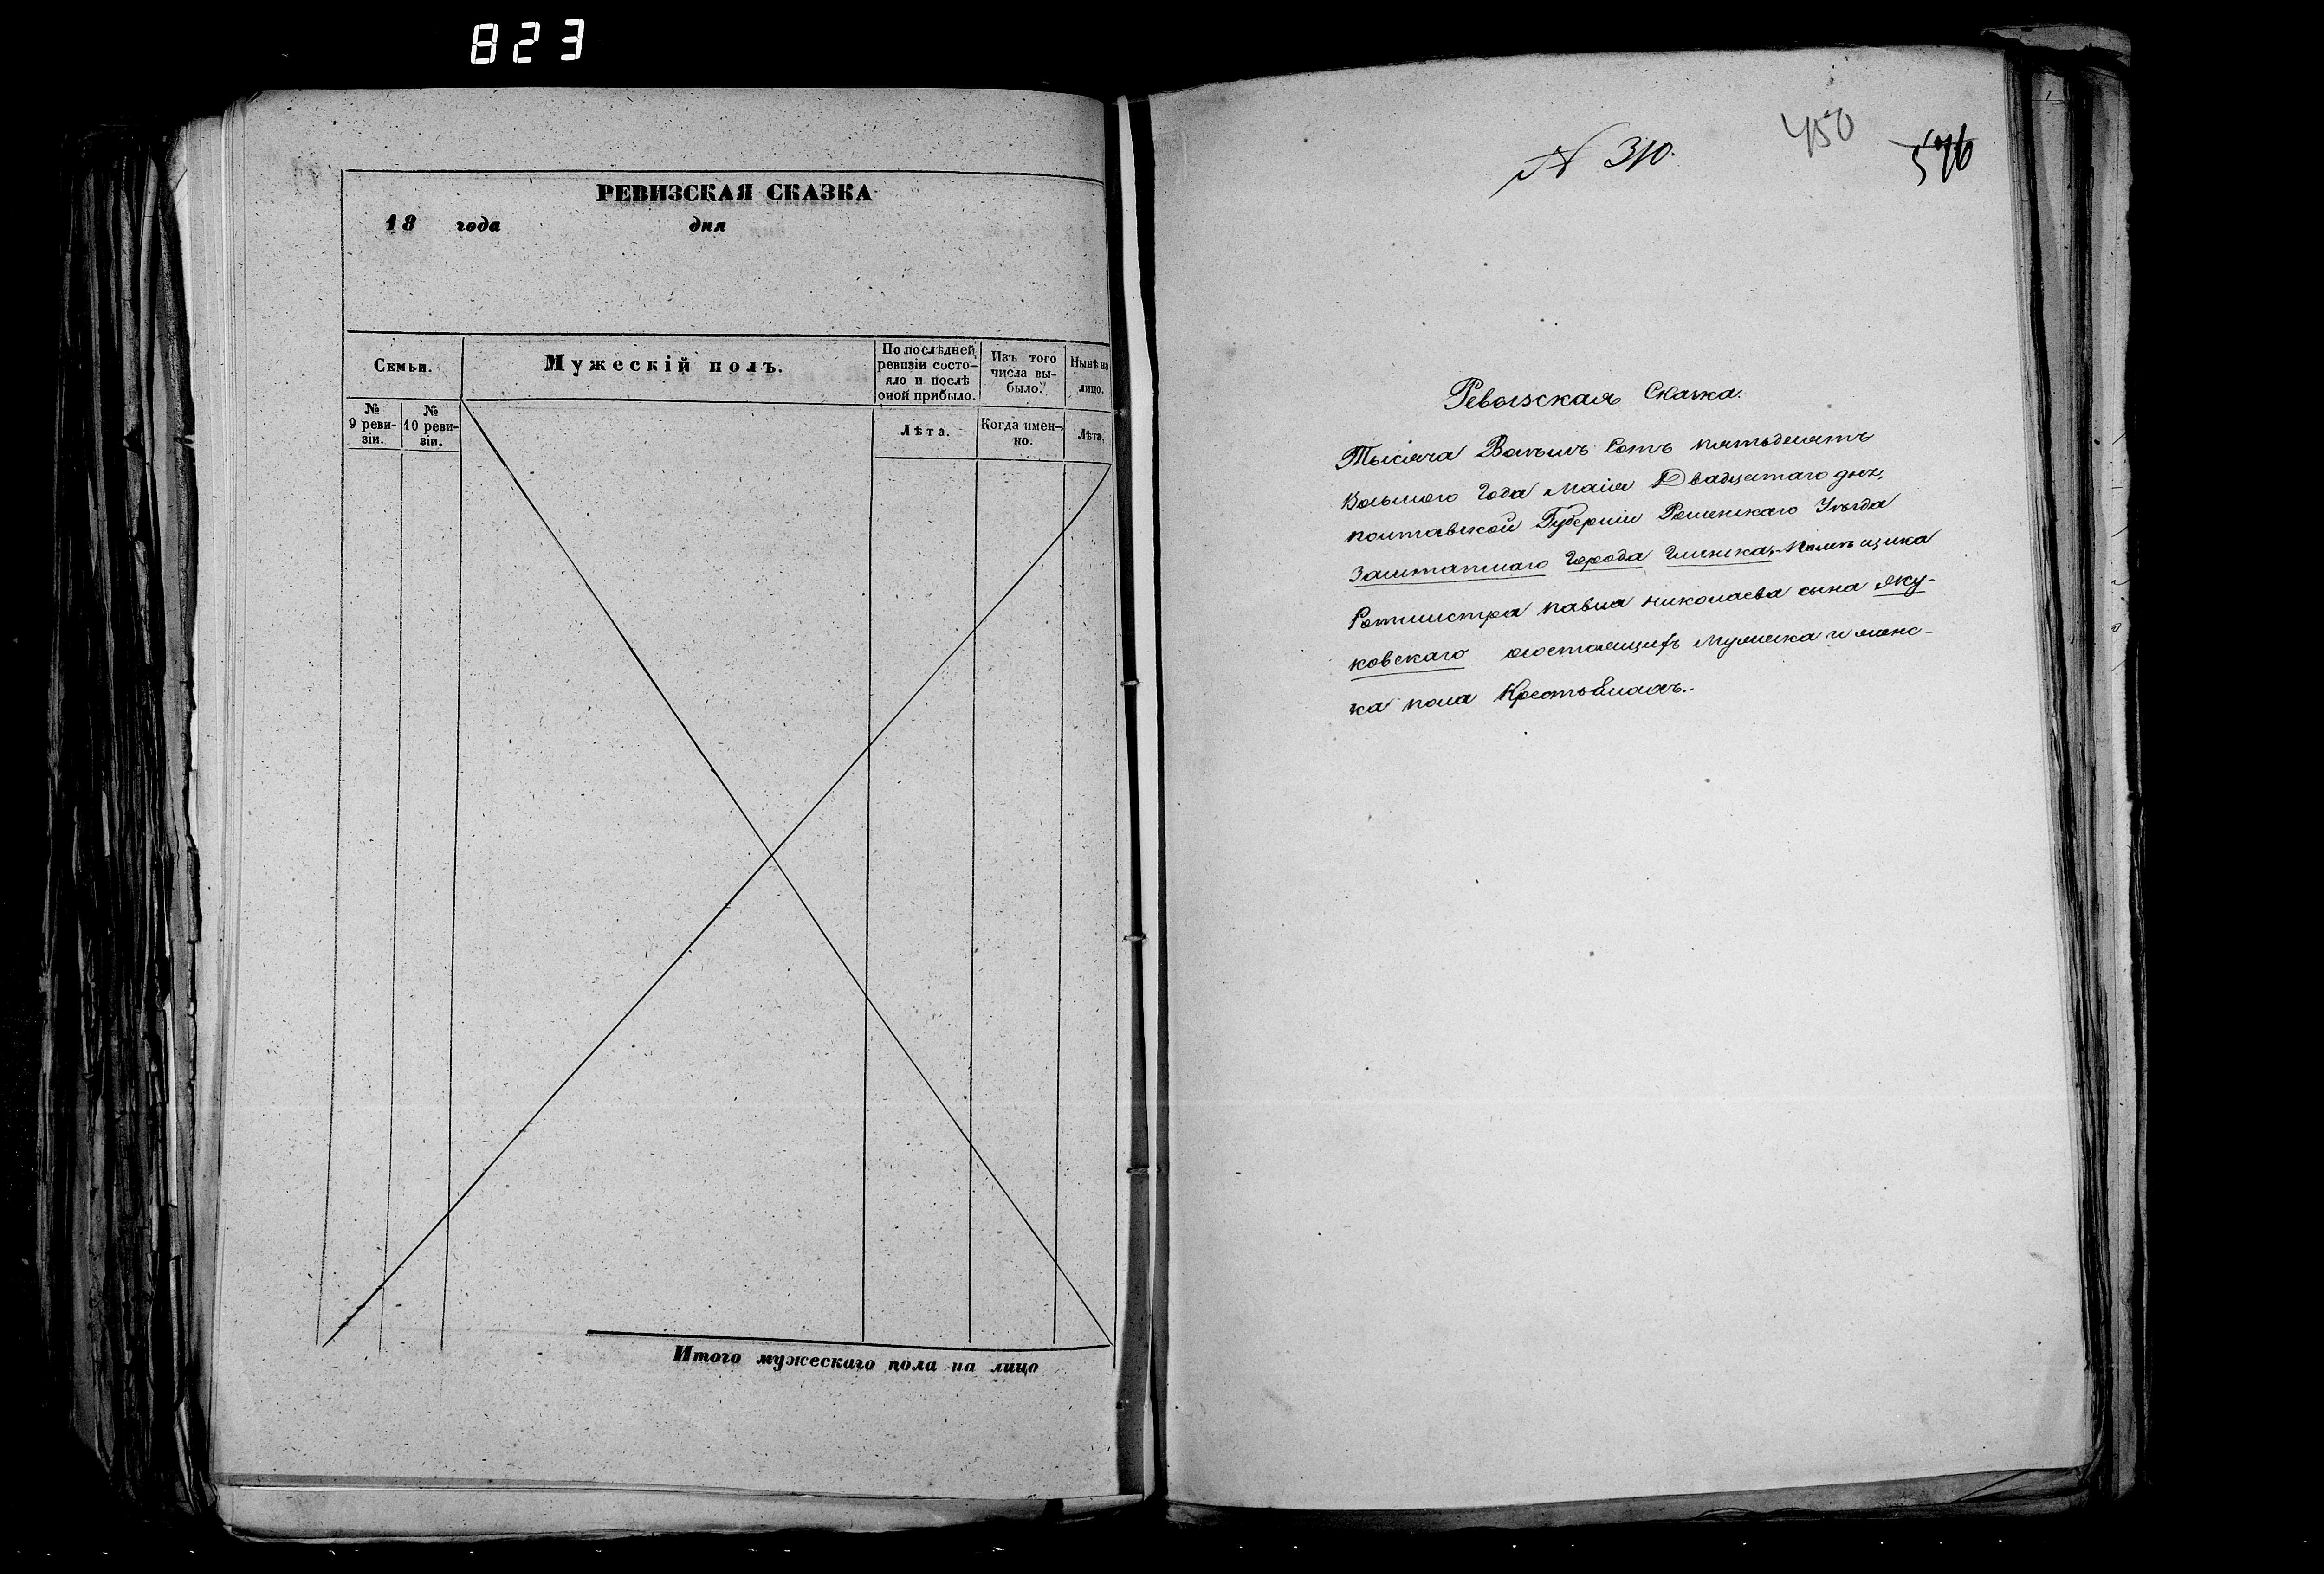 823
РЕВИЗСКАЯ СКАЗКА
18 года дня
Семьи.
Мужескій полъ.
По послѣдней ревизіи состо-
яло и послѣ
оной прибыло.
Изъ того
числа вы-
было.
Нынѣ на
лицо.
№
9 реви-
зіи.
№
10 реви-
зіи.
Лѣта.
Когда имен-
но.
Лѣта.
Итого мужескаго пола на лицо
N 310.
450
576
Ревизская Сказка.
Тысяча Восемь Сотъ пятьдесятъ
Восьмого Года Маія Двадцатаго дня,
полтавской Губерніи Роменскаго Уѣзда
Заштатнаго Города Глинска, Помѣщика
Ротмистра павла николаева сына яку-
ковскаго Мужеска и женс-
ка пола Крестьянахъ.